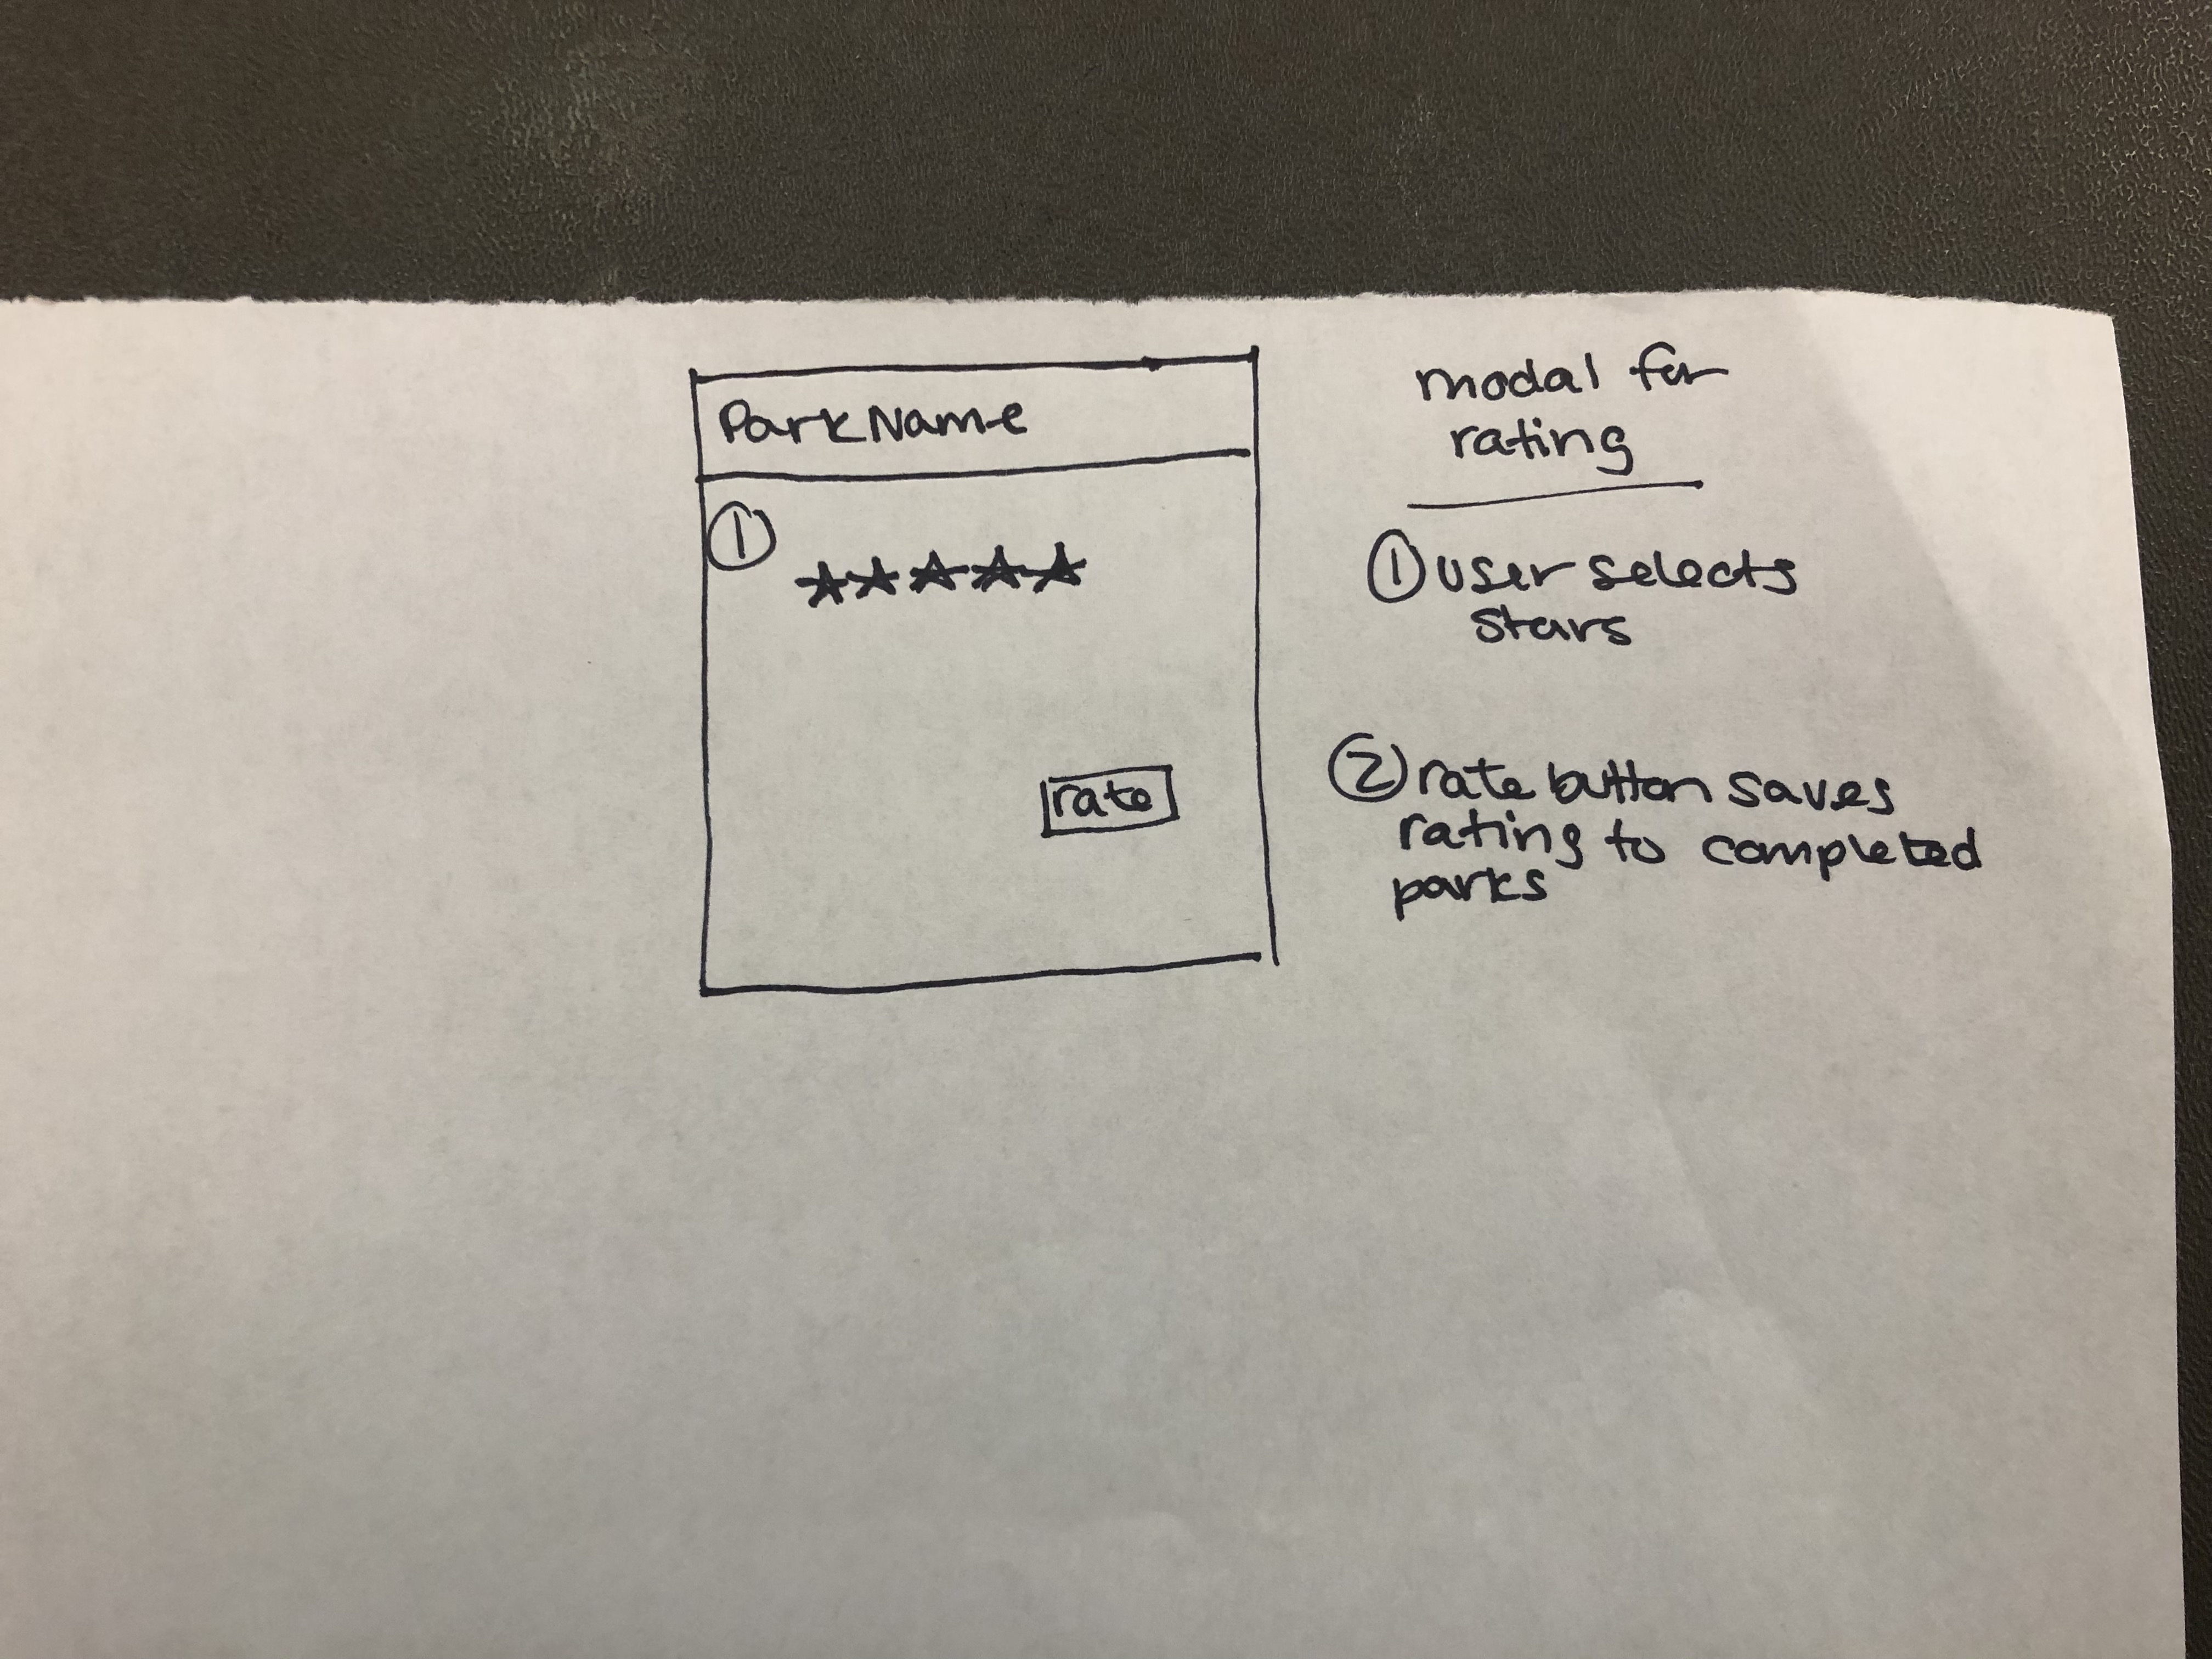 Park Name
①
rate
modal for
rating
① user selects
stars
② rate button saves
rating to completed
parks